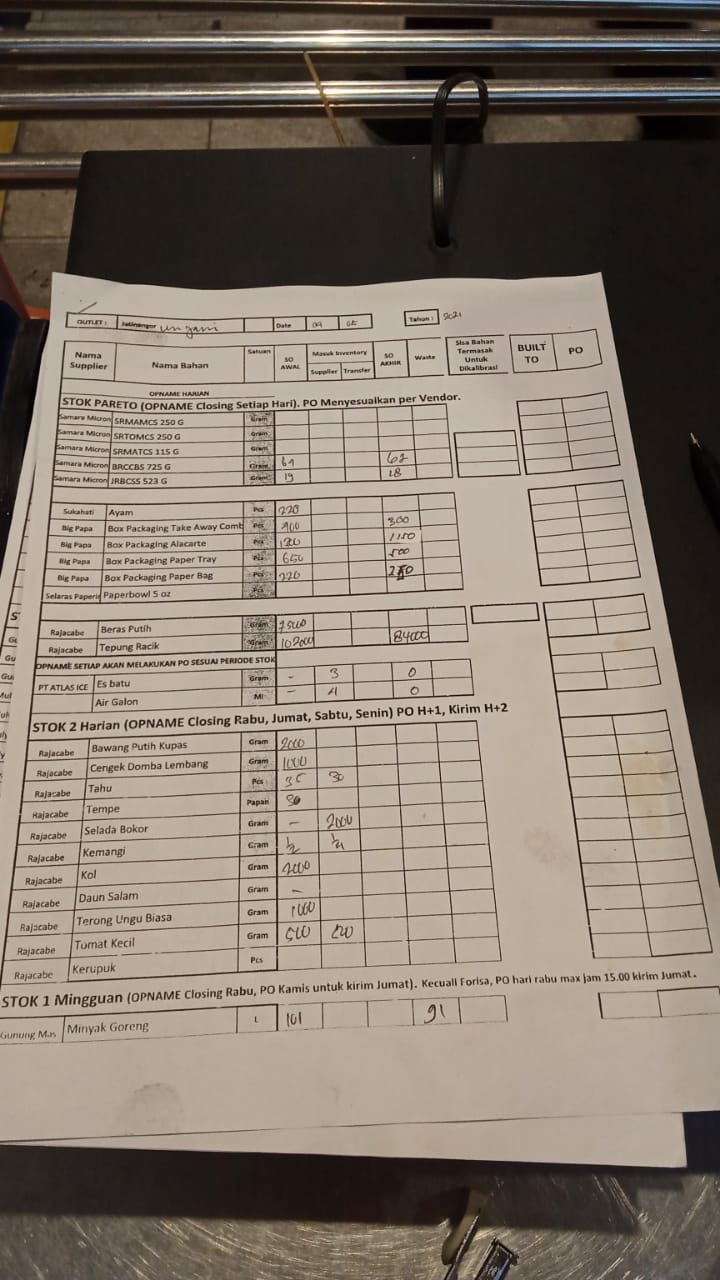 OUTLET : Jatinangor ungani Date 09 05 Tahun : 2021
Nama Supplier Nama Bahan Satuan SO AWAL Masuk Inventory Supplier Transfer SO AKHIR Waste Sisa Bahan Termasak Untuk Dikalibrasi BUILT TO PO
OPNAME HARIAN
STOK PARETO (OPNAME Closing Setiap Hari). PO Menyesuaikan per Vendor.
Samara Micron SRMAMCS 250 G Gram
Samara Micron SRTOMCS 250 G Gram
Samara Micron SRMATCS 115 G Gram
Samara Micron BRCCBS 725 G Gram 61 62
Samara Micron JRBCSS 523 G Gram 19 18
Sukahati Ayam Pcs 220
Big Papa Box Packaging Take Away Comb Pcs 900 800
Big Papa Box Packaging Alacarte Pcs 1150
Big Papa Box Packaging Paper Tray Pcs 650 500
Big Papa Box Packaging Paper Bag Pcs 220
Selaras Paperin Paperbowl 5 oz Pcs
Rajacabe Beras Putih Gram 7500
Rajacabe Tepung Racik Gram 102000 84000
OPNAME SETIAP AKAN MELAKUKAN PO SESUAI PERIODE STOK
PT ATLAS ICE Es batu Gram - 3 0
Air Galon Ml - 4 0
STOK 2 Harian (OPNAME Closing Rabu, Jumat, Sabtu, Senin) PO H+1, Kirim H+2
Rajacabe Bawang Putih Kupas Gram 2000
Rajacabe Cengek Domba Lembang Gram 1000
Rajacabe Tahu Pcs 35 30
Rajacabe Tempe Papan 30
Rajacabe Selada Bokor Gram - 2000
Rajacabe Kemangi Gram 1/2 1/4
Rajacabe Kol Gram 2000
Rajacabe Daun Salam Gram -
Rajacabe Terong Ungu Biasa Gram 1000
Rajacabe Tomat Kecil Gram 500
Rajacabe Kerupuk Pcs
STOK 1 Mingguan (OPNAME Closing Rabu, PO Kamis untuk kirim Jumat). Kecuali Forisa, PO hari rabu max jam 15.00 kirim Jumat.
Gunung Mas Minyak Goreng L 101 91